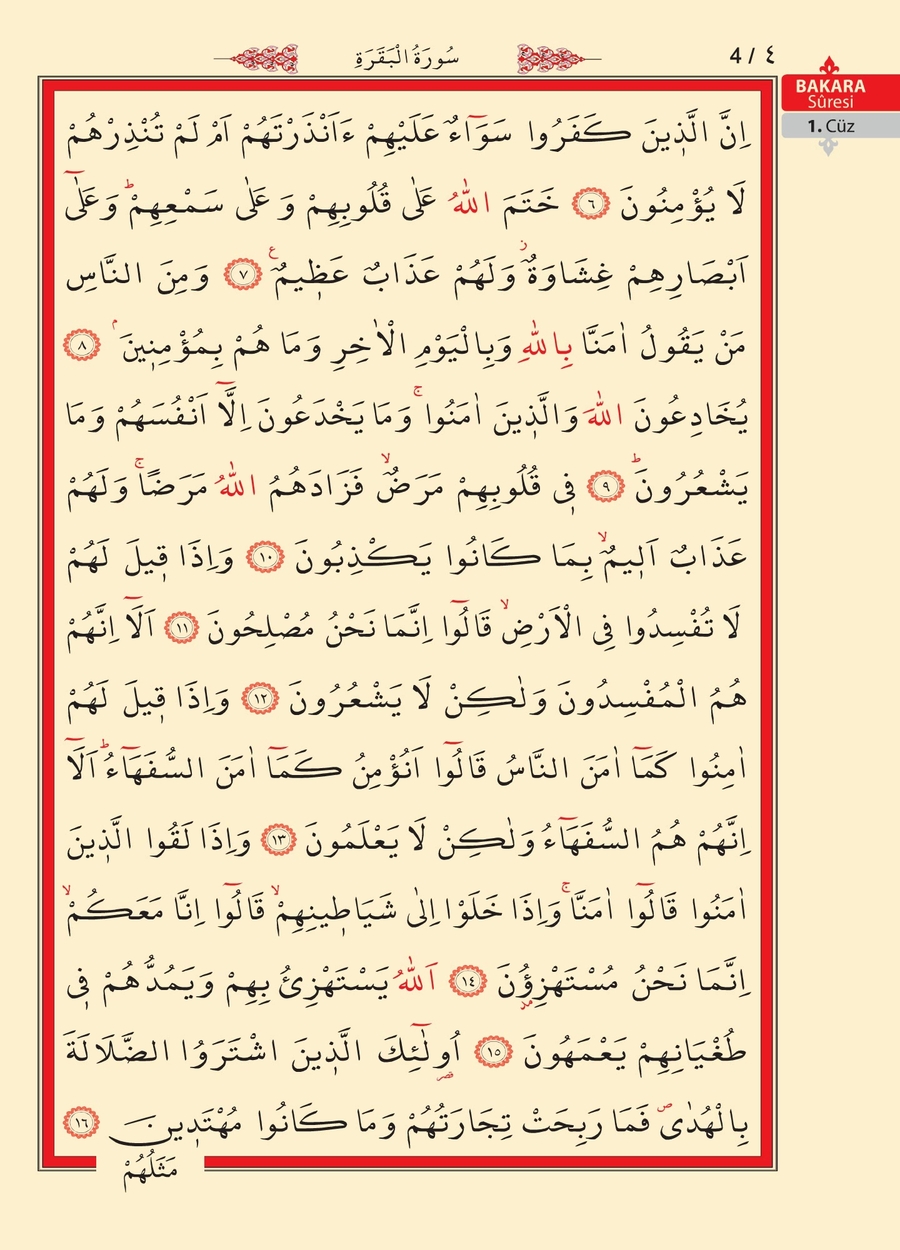 سُورَةُ الْبَقَرَةِ
4 / ٤
BAKARA
Sûresi
1. Cüz
اِنَّ الَّذ۪ينَ كَفَرُوا سَوَٓاءٌ عَلَيْهِمْ ءَاَنْذَرْتَهُمْ اَمْ لَمْ تُنْذِرْهُمْ
لَا يُؤْمِنُونَ ﴿٦﴾ خَتَمَ اللّٰهُ عَلٰى قُلُوبِهِمْ وَ عَلٰى سَمْعِهِمْۜ وَعَلٰٓى
اَبْصَارِهِمْ غِشَاوَةٌۘ وَلَهُمْ عَذَابٌ عَظ۪يمٌ۟ ﴿٧﴾ وَمِنَ النَّاسِ
مَنْ يَقُولُ اٰمَنَّا بِاللّٰهِ وَبِالْيَوْمِ الْاٰخِرِ وَمَا هُمْ بِمُؤْمِن۪ينَۢ ﴿٨﴾
يُخَادِعُونَ اللّٰهَ وَالَّذ۪ينَ اٰمَنُواۚ وَمَا يَخْدَعُونَ اِلَّٓا اَنْفُسَهُمْ وَمَا
يَشْعُرُونَۜ ﴿٩﴾ ف۪ي قُلُوبِهِمْ مَرَضٌۙ فَزَادَهُمُ اللّٰهُ مَرَضًاۚ وَلَهُمْ
عَذَابٌ اَل۪يمٌۙ بِمَا كَانُوا يَكْذِبُونَ ﴿١٠﴾ وَاِذَا ق۪يلَ لَهُمْ
لَا تُفْسِدُوا فِي الْاَرْضِۙ قَالُٓوا اِنَّمَا نَحْنُ مُصْلِحُونَ ﴿١١﴾ اَلَٓا اِنَّهُمْ
هُمُ الْمُفْسِدُونَ وَلٰكِنْ لَا يَشْعُرُونَ ﴿١٢﴾ وَاِذَا ق۪يلَ لَهُمْ
اٰمِنُوا كَمَٓا اٰمَنَ النَّاسُ قَالُٓوا اَنُؤْمِنُ كَمَٓا اٰمَنَ السُّفَهَٓاءُۜ اَلَٓا
اِنَّهُمْ هُمُ السُّفَهَٓاءُ وَلٰكِنْ لَا يَعْلَمُونَ ﴿١٣﴾ وَاِذَا لَقُوا الَّذ۪ينَ
اٰمَنُوا قَالُٓوا اٰمَنَّاۚ وَاِذَا خَلَوْا اِلٰى شَيَاط۪ينِهِمْۙ قَالُٓوا اِنَّا مَعَكُمْۙ
اِنَّمَا نَحْنُ مُسْتَهْزِؤُ۫نَ ﴿١٤﴾ اَللّٰهُ يَسْتَهْزِئُ بِهِمْ وَيَمُدُّهُمْ ف۪ي
طُغْيَانِهِمْ يَعْمَهُونَ ﴿١٥﴾ اُو۬لٰٓئِكَ الَّذ۪ينَ اشْتَرَوُا الضَّلَالَةَ
بِالْهُدٰىۖ فَمَا رَبِحَتْ تِجَارَتُهُمْ وَمَا كَانُوا مُهْتَد۪ينَ ﴿١٦﴾
مَثَلُهُمْ